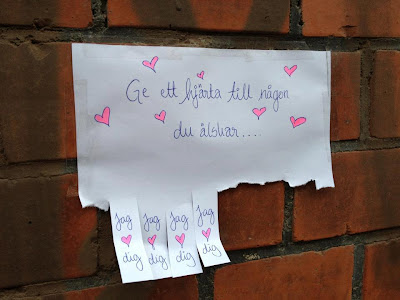 Ge ett hjärta till någon
du älskar....
jag
♥
dig
jag
♥
dig
jag
♥
dig
jag
♥
dig